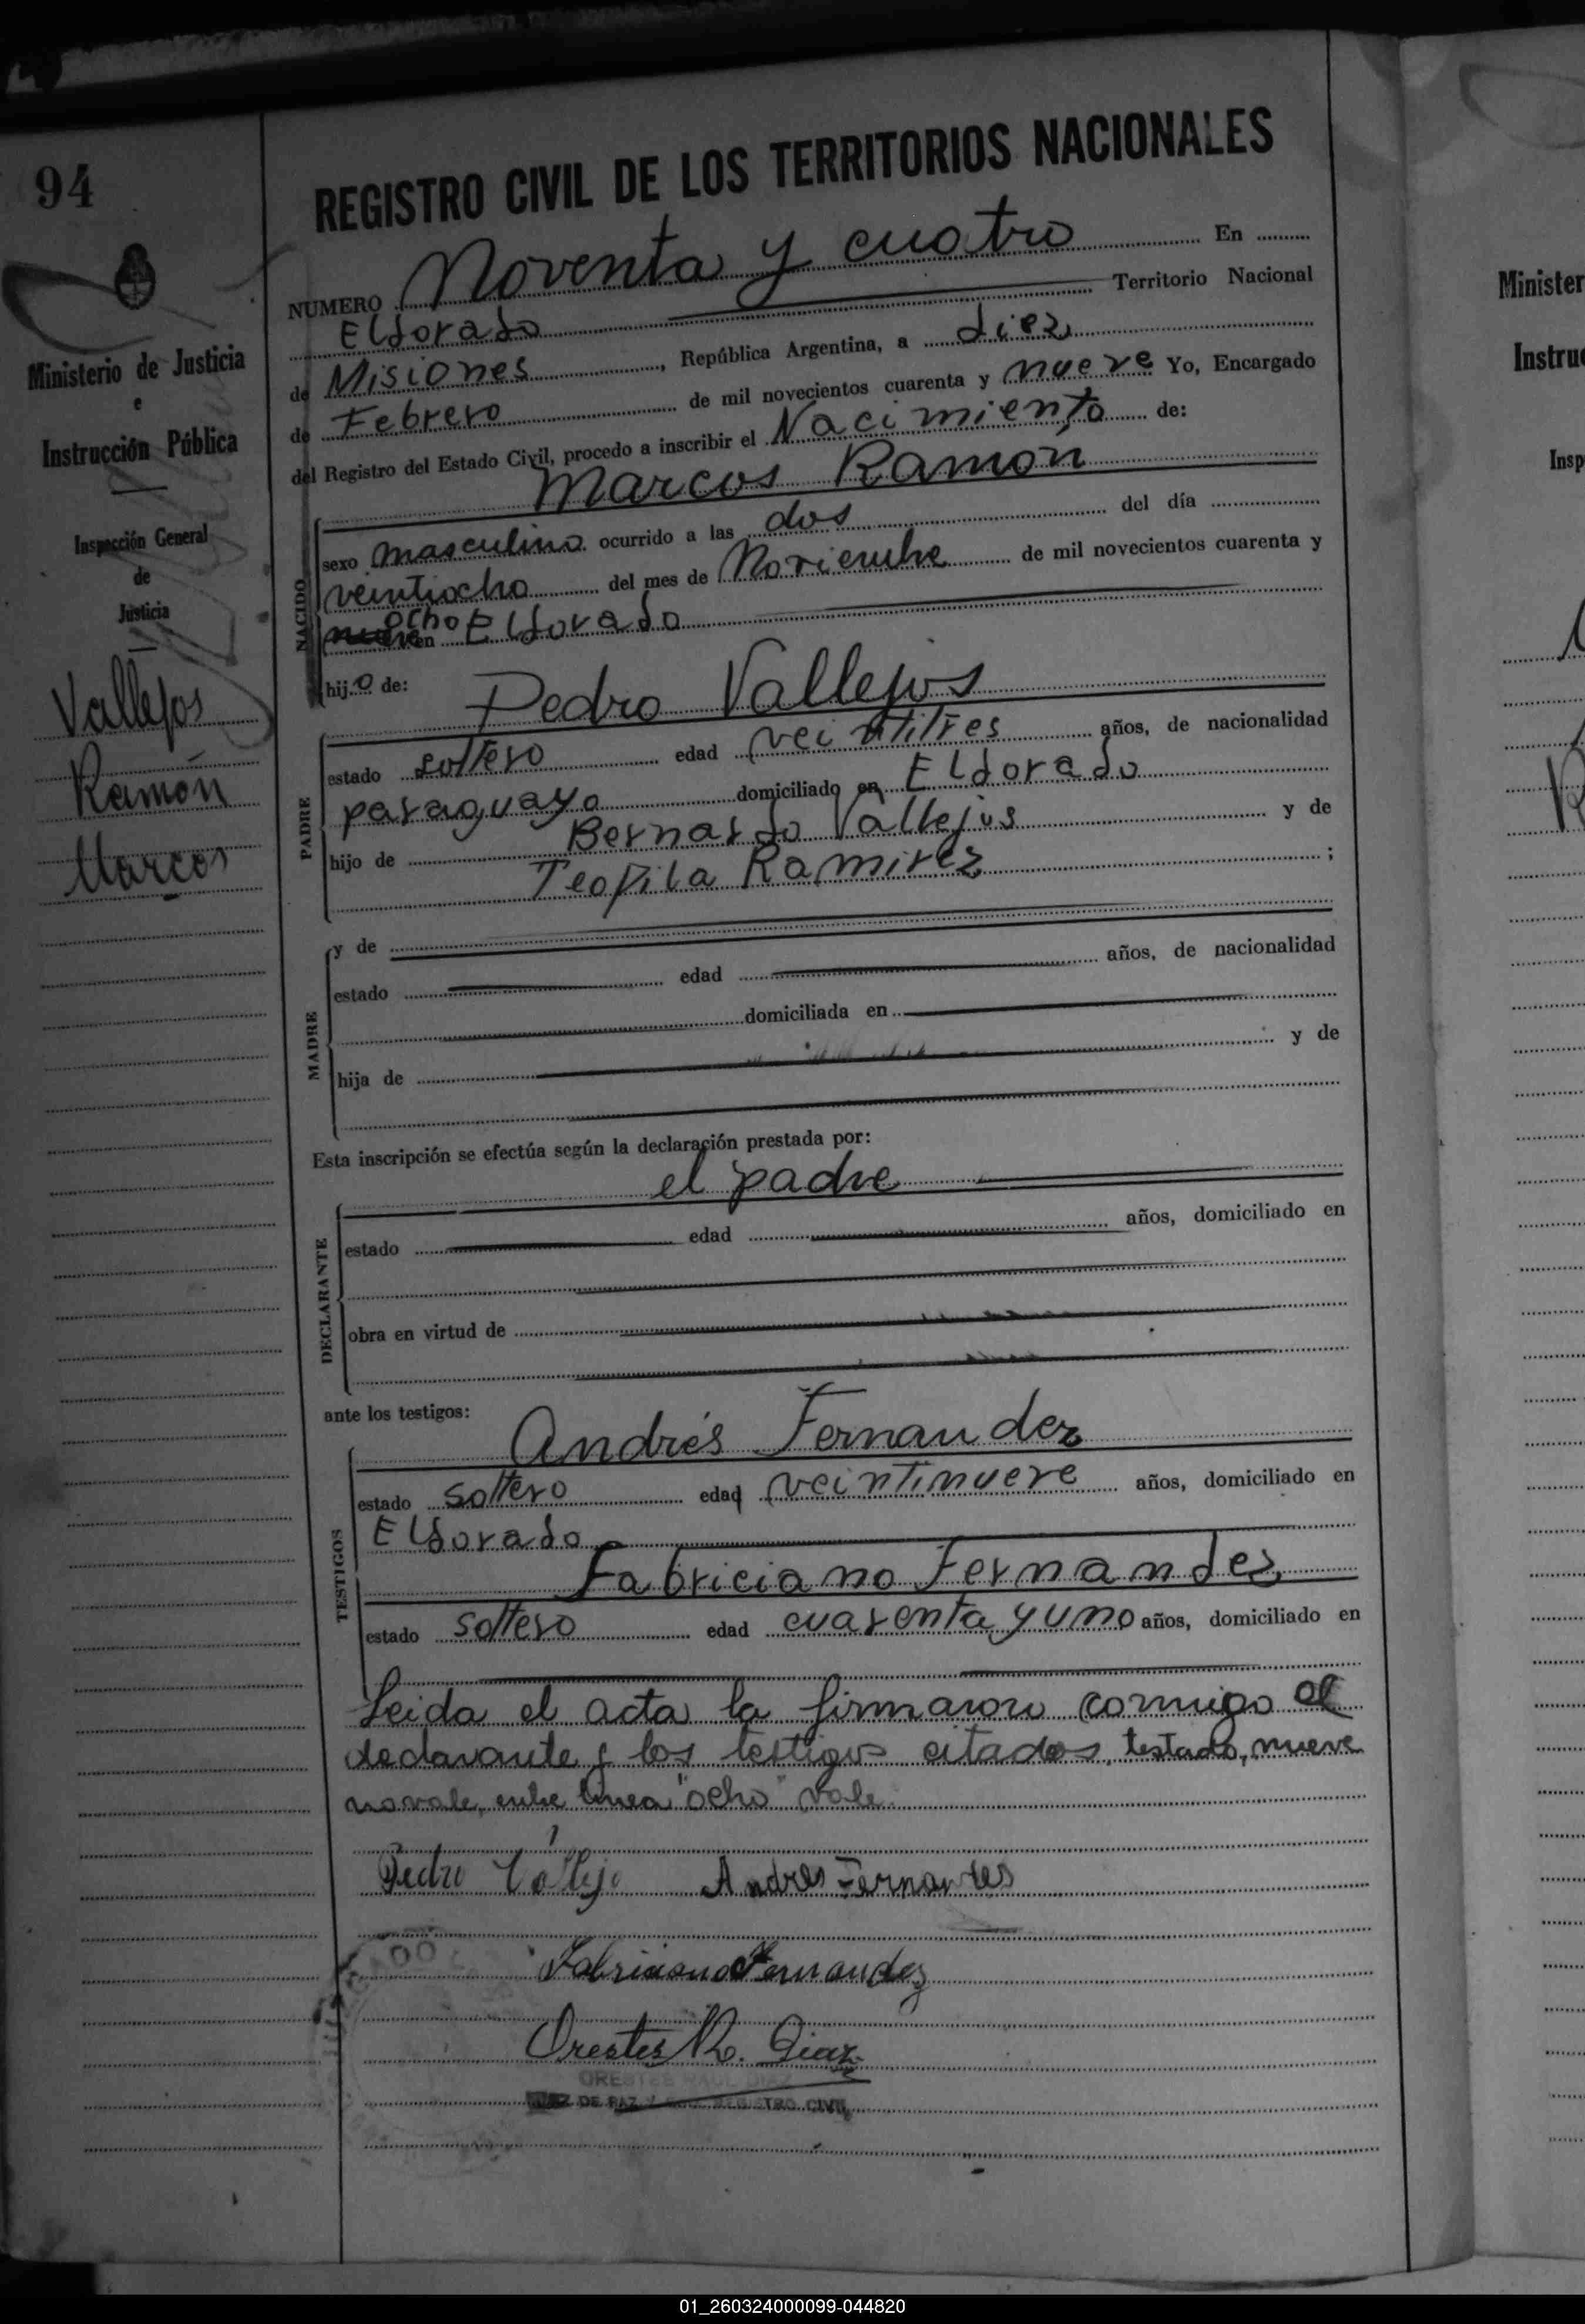 94
Ministerio de Justicia
e
Instrucción Pública
Inspección General
de
Justicia
Vallejos
Ramón
Marcos
REGISTRO CIVIL DE LOS TERRITORIOS NACIONALES
NUMERO Noventa y cuatro En
Eldorado Territorio Nacional
de Misiones, República Argentina, a diez
de Febrero de mil novecientos cuarenta y nueve Yo, Encargado
del Registro del Estado Civil, procedo a inscribir el Nacimiento de:
Marcos Ramón
NACIDO
sexo masculino ocurrido a las dos del día
veintiocho del mes de Noviembre de mil novecientos cuarenta y
nueve ocho en Eldorado
hijo de:
Pedro Vallejos
PADRE
estado soltero edad veintitres años, de nacionalidad
paraguaya domiciliado en Eldorado
hijo de Bernardo Vallejos y de
Teofila Ramirez ;
MADRE
y de
estado edad años, de nacionalidad
domiciliada en
hija de y de
Esta inscripción se efectúa según la declaración prestada por:
el padre
DECLARANTE
estado edad años, domiciliado en
obra en virtud de
ante los testigos:
Andrés Fernandez
TESTIGOS
estado soltero edad veintinueve años, domiciliado en
Eldorado
Fabriciano Fernandez
estado soltero edad cuarenta y uno años, domiciliado en
Leida el acta la firmaron conmigo el
declarante y los testigos citados, testado, nueve
no vale, entre linea "ocho" vale
Pedro Vallejo Andres Fernandes
Fabriciano Fernandez
Orestes R. Diaz
ORESTES RAUL DIAZ
JUEZ DE PAZ Y REGISTRO CIVIL
Minister
Instruc
Insp
01_260324000099-044820